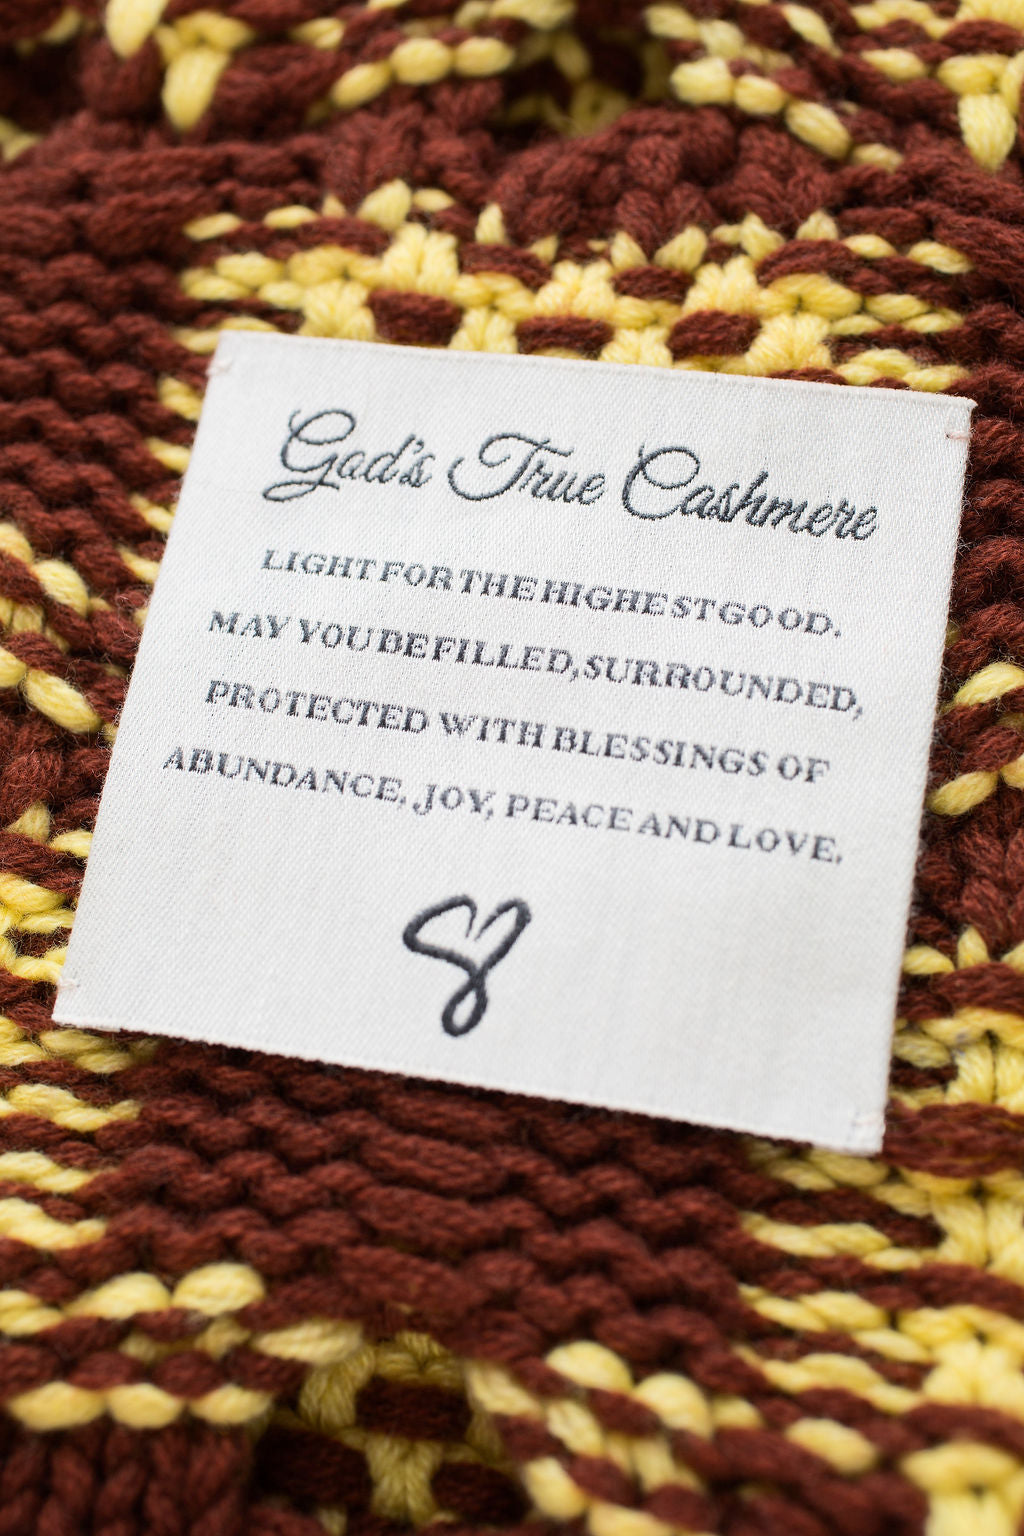 God's True Cashmere
LIGHT FOR THE HIGHEST GOOD.
MAY YOU BE FILLED, SURROUNDED,
PROTECTED WITH BLESSINGS OF
ABUNDANCE, JOY, PEACE AND LOVE.